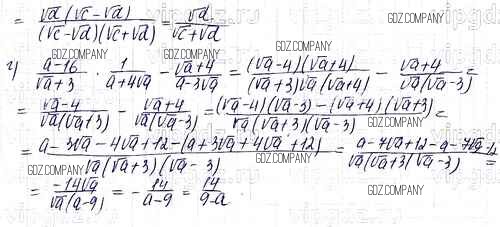 = √d(√c-√d) / (√c-√d)(√c+√d) = √d / √c+√d
GDZ.COMPANY
GDZ.COMPANY
г) a-16 / √a+3 · 1 / a+4√a - √a+4 / a-3√a = (√a-4)(√a+4) / (√a+3)√a(√a+4) - √a+4 / √a(√a-3) =
GDZ.COMPANY
= √a-4 / √a(√a+3) - √a+4 / √a(√a-3) = (√a-4)(√a-3)-(√a+4)(√a+3) / √a(√a+3)(√a-3) =
GDZ.COMPANY
= a-3√a-4√a+12-(a+3√a+4√a+12) / √a(√a+3)(√a-3) = a-7√a+12-a-7√a-12 / √a(√a+3)(√a-3) =
GDZ.COMPANY GDZ.COMPANY
= -14√a / √a(a-9) = - 14 / a-9 = 14 / 9-a .
GDZ.COMPANY